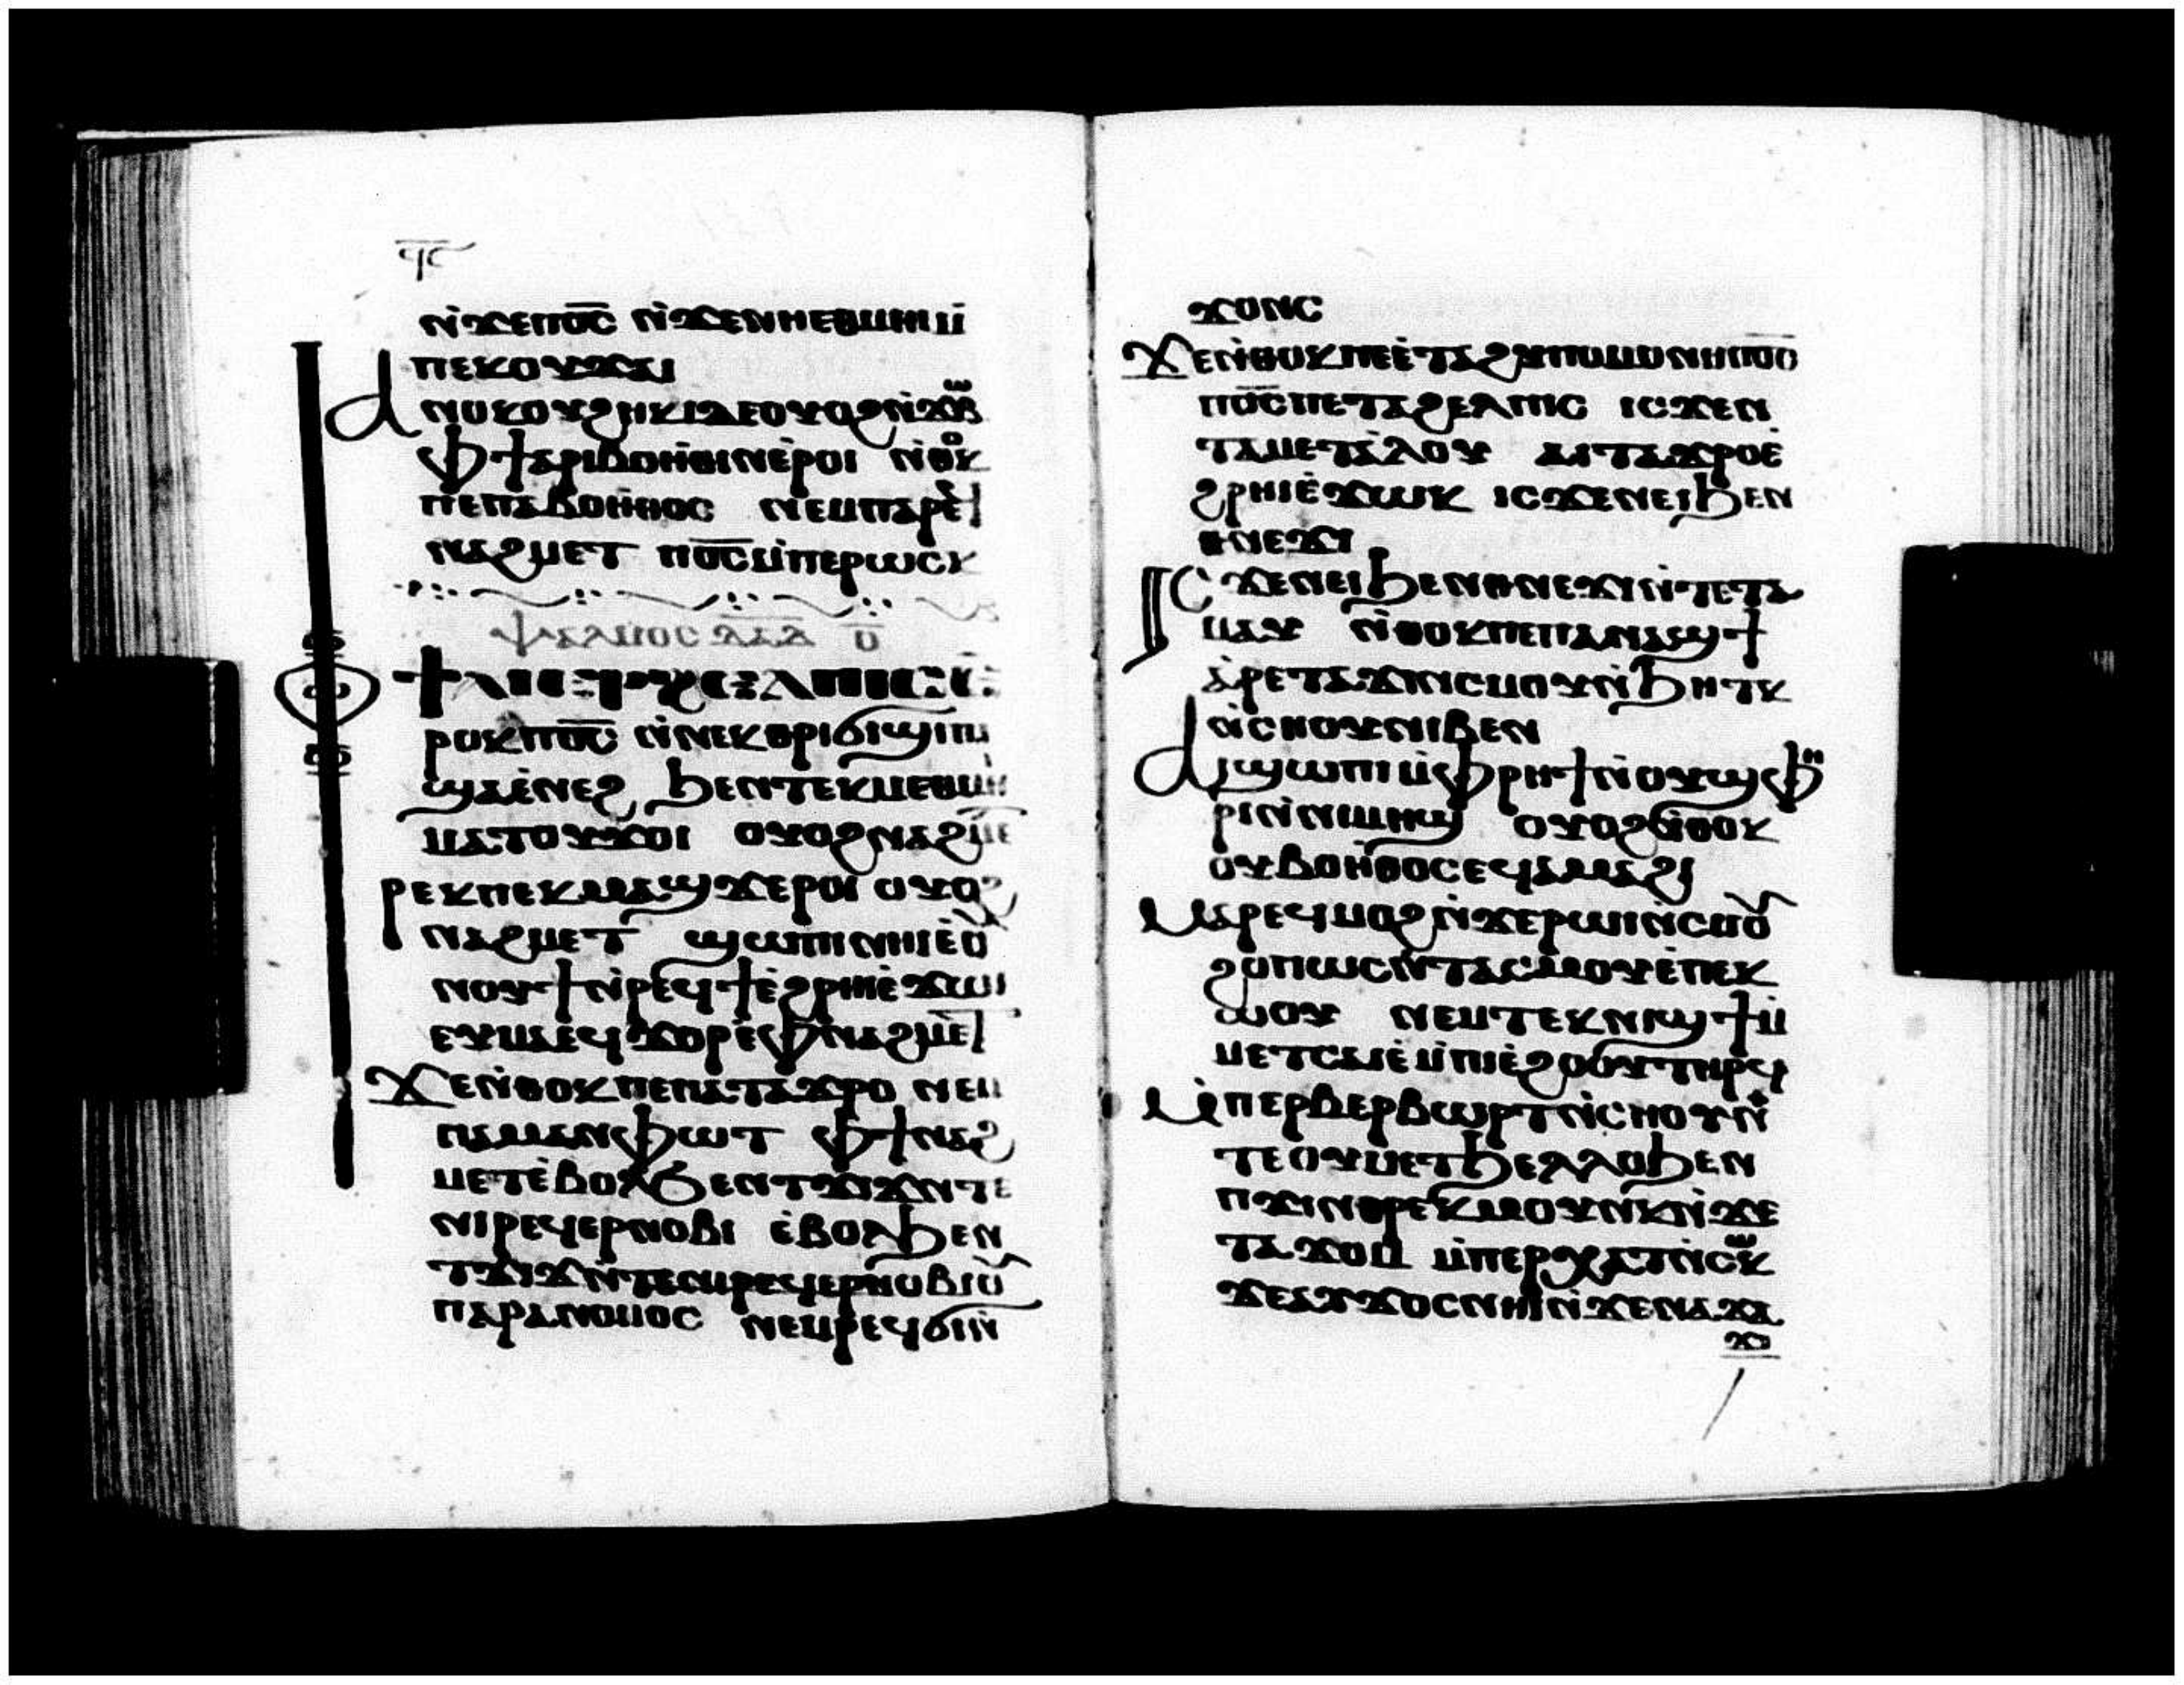 ϥⲋ
ⲛ̀ϫⲉⲡⲟ̅ⲥ̅ ⲛ̀ϫⲉⲛⲏⲉⲑⲙⲏⲓ ⲙ̀
ⲡⲉⲕⲟⲩϫⲁⲓ
Ⲁⲛⲟⲕⲟⲩϩⲏⲕⲓⲇⲉⲟⲩⲟϩⲛ̀ϫⲱⲃ
ⲫϯⲁⲣⲓⲃⲟⲏ̀ⲑⲓⲛⲉ̀ⲣⲟⲓ ⲛ̀ⲑⲟⲕ
ⲡⲉⲡⲁⲃⲟⲏ̀ⲑⲟⲥ ⲛⲉⲙⲡⲁⲣⲉϥ
ⲛⲁϩⲙⲉⲧ ⲡⲟ̅ⲥ̅ⲙ̀ⲡⲉⲣⲱⲥⲕ
ⲯⲁⲗⲙⲟⲥ ⲇⲁⲇ ⲟ̅
Ϯⲁⲓⲉⲣϩⲉⲗⲡⲓⲥ ⲉ̀
ⲣⲟⲕⲡⲟ̅ⲥ̅ ⲛ̀ⲛⲉⲕⲑⲣⲓϭⲓϣⲓⲡⲓ
ϣⲁⲉ̀ⲛⲉϩ ϧⲉⲛⲧⲉⲕⲙⲉⲑⲙⲏⲓ
ⲙⲁⲧⲟⲩϫⲟⲓ ⲟⲩⲟϩⲛⲁϩⲙⲉⲧ
ⲣⲉⲕⲡⲉⲕⲙⲁϣϫⲉⲣⲟⲓ ⲟⲩⲟϩ
ⲛⲁϩⲙⲉⲧ ϣⲱⲡⲓⲛⲏⲓⲉ̀ⲟⲩ
ⲛⲟⲩϯⲛ̀ⲣⲉϥϯⲉ̀ϩⲣⲏⲓⲉ̀ϫⲱⲓ
ⲉⲩⲙⲁⲉϥϫⲟⲣⲉ̀ⲫⲛⲁϩⲙⲉⲧ
Ϫⲉⲛ̀ⲑⲟⲕⲡⲉⲡⲁⲧⲁϫⲣⲟ ⲛⲉⲙ
ⲡⲁⲙⲁⲛⲫⲱⲧ ⲫϯⲛⲁϩ
ⲙⲉⲧⲉ̀ⲃⲟⲗϧⲉⲛⲧϫⲓϫⲛ̀ⲧⲉ
ⲛⲓⲣⲉϥⲉⲣⲛⲟⲃⲓ ⲉ̀ⲃⲟⲗϧⲉⲛ
ⲧϫⲓϫⲛ̀ⲧⲉⲛⲓⲣⲉϥⲉⲣⲛⲟⲃⲓⲟⲩ
ⲡⲁⲣⲁⲛⲟⲙⲟⲥ ⲛⲉⲙⲣⲉϥϭⲓⲛ̀
ϫⲟⲛⲥ
Ϫⲉⲛ̀ⲑⲟⲕⲡⲉⲉ̀ⲧⲁϩⲩⲡⲟⲙⲟⲛⲏⲡⲟ̅ⲥ̅
ⲡⲟ̅ⲥ̅ⲡⲉⲧⲁϩⲉⲗⲡⲓⲥ ⲓⲥϫⲉⲛ
ⲧⲁⲙⲉⲧⲁ̀ⲗⲟⲩ ⲁⲓⲧⲁϫⲣⲟⲉ̀
ϩⲣⲏⲓⲉ̀ϫⲱⲕ ⲓⲥϫⲉⲛⲉⲓϧⲉⲛ
ⲑⲛⲉϫⲓ
Ⲓⲥϫⲉⲛⲉⲓϧⲉⲛⲑⲛⲉϫⲓⲛ̀ⲧⲉⲧⲁ
ⲙⲁⲩ ⲛ̀ⲑⲟⲕⲡⲉⲡⲁⲛⲁϣϯ
ⲁ̀ⲣⲉⲧⲁϫⲓⲛⲥⲙⲟⲩⲛ̀ϧⲏⲧⲕ
ⲛ̀ⲥⲏⲟⲩⲛⲓⲃⲉⲛ
Ⲁⲓϣⲱⲡⲓⲙ̀ⲫⲣⲏϯⲛ̀ⲟⲩϣⲫⲏ
ⲣⲓⲛ̀ⲛⲓⲙⲏϣ ⲟⲩⲟϩⲛ̀ⲑⲟⲕ
ⲟⲩⲃⲟⲏ̀ⲑⲟⲥⲉϥⲁ̀ⲙⲁϩⲓ
Ⲙⲁⲣⲉϥⲙⲟϩⲛ̀ϫⲉⲣⲱⲓⲛ̀ⲥⲙⲟⲩ
ϩⲟⲡⲱⲥⲛ̀ⲧⲁⲥⲙⲟⲩⲉ̀ⲡⲉⲕ
ⲱ̀ⲟⲩ ⲛⲉⲙⲧⲉⲕⲛⲓϣϯⲙ̀
ⲙⲉⲧⲥⲁⲓⲉ̀ⲙ̀ⲡⲓⲉ̀ϩⲟⲟⲩⲧⲏⲣϥ
Ⲙ̀ⲡⲉⲣⲃⲉⲣⲃⲱⲣⲧⲛ̀ⲥⲏⲟⲩⲛ̀
ⲧⲉⲟⲩⲙⲉⲧϧⲉⲗⲗⲟϧⲉⲛ
ⲡϫⲓⲛⲑⲣⲉⲕⲙⲟⲩⲛⲕⲛ̀ϫⲉ
ⲧⲁϫⲟⲙ ⲙ̀ⲡⲉⲣⲭⲁⲧⲛ̀ⲥⲱⲕ
ϫⲉⲁⲩϫⲟⲥⲛⲏⲓⲛ̀ϫⲉⲛⲁϫⲁ
ϫⲓ